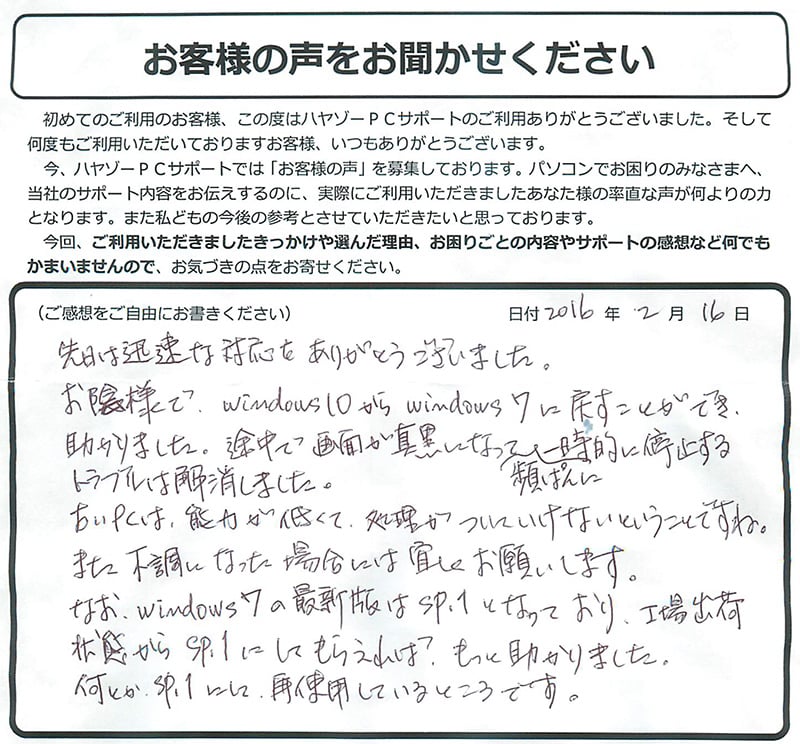 お客様の声をお聞かせください
初めてのご利用のお客様、この度はハヤゾーPCサポートのご利用ありがとうございました。そして
何度もご利用いただいておりますお客様、いつもありがとうございます。
今、ハヤゾーPCサポートでは「お客様の声」を募集しております。パソコンでお困りのみなさまへ、
当社のサポート内容をお伝えするのに、実際にご利用いただきましたあなた様の率直な声が何よりの力
となります。また私どもの今後の参考とさせていただきたいと思っております。
今回、ご利用いただきましたきっかけや選んだ理由、お困りごとの内容やサポートの感想など何でも
かまいませんので、お気づきの点をお寄せください。
（ご感想をご自由にお書きください） 日付 2016 年 2 月 16 日
先日は迅速な対応をありがとうございました。
お陰様で、windows10からwindows7に戻すことができ、
助かりました。途中で画面が真黒になって一時的に停止する
頻ぱんに
トラブルは解消しました。
古いPCは、能力が低くて、処理がついていけないということですね。
また不調になった場合には宜しくお願いします。
なお、windows7の最新版はSP.1となっており、工場出荷
状態からSP.1にしてもらえれば、もっと助かりました。
何とか、SP.1にして、再使用しているところです。